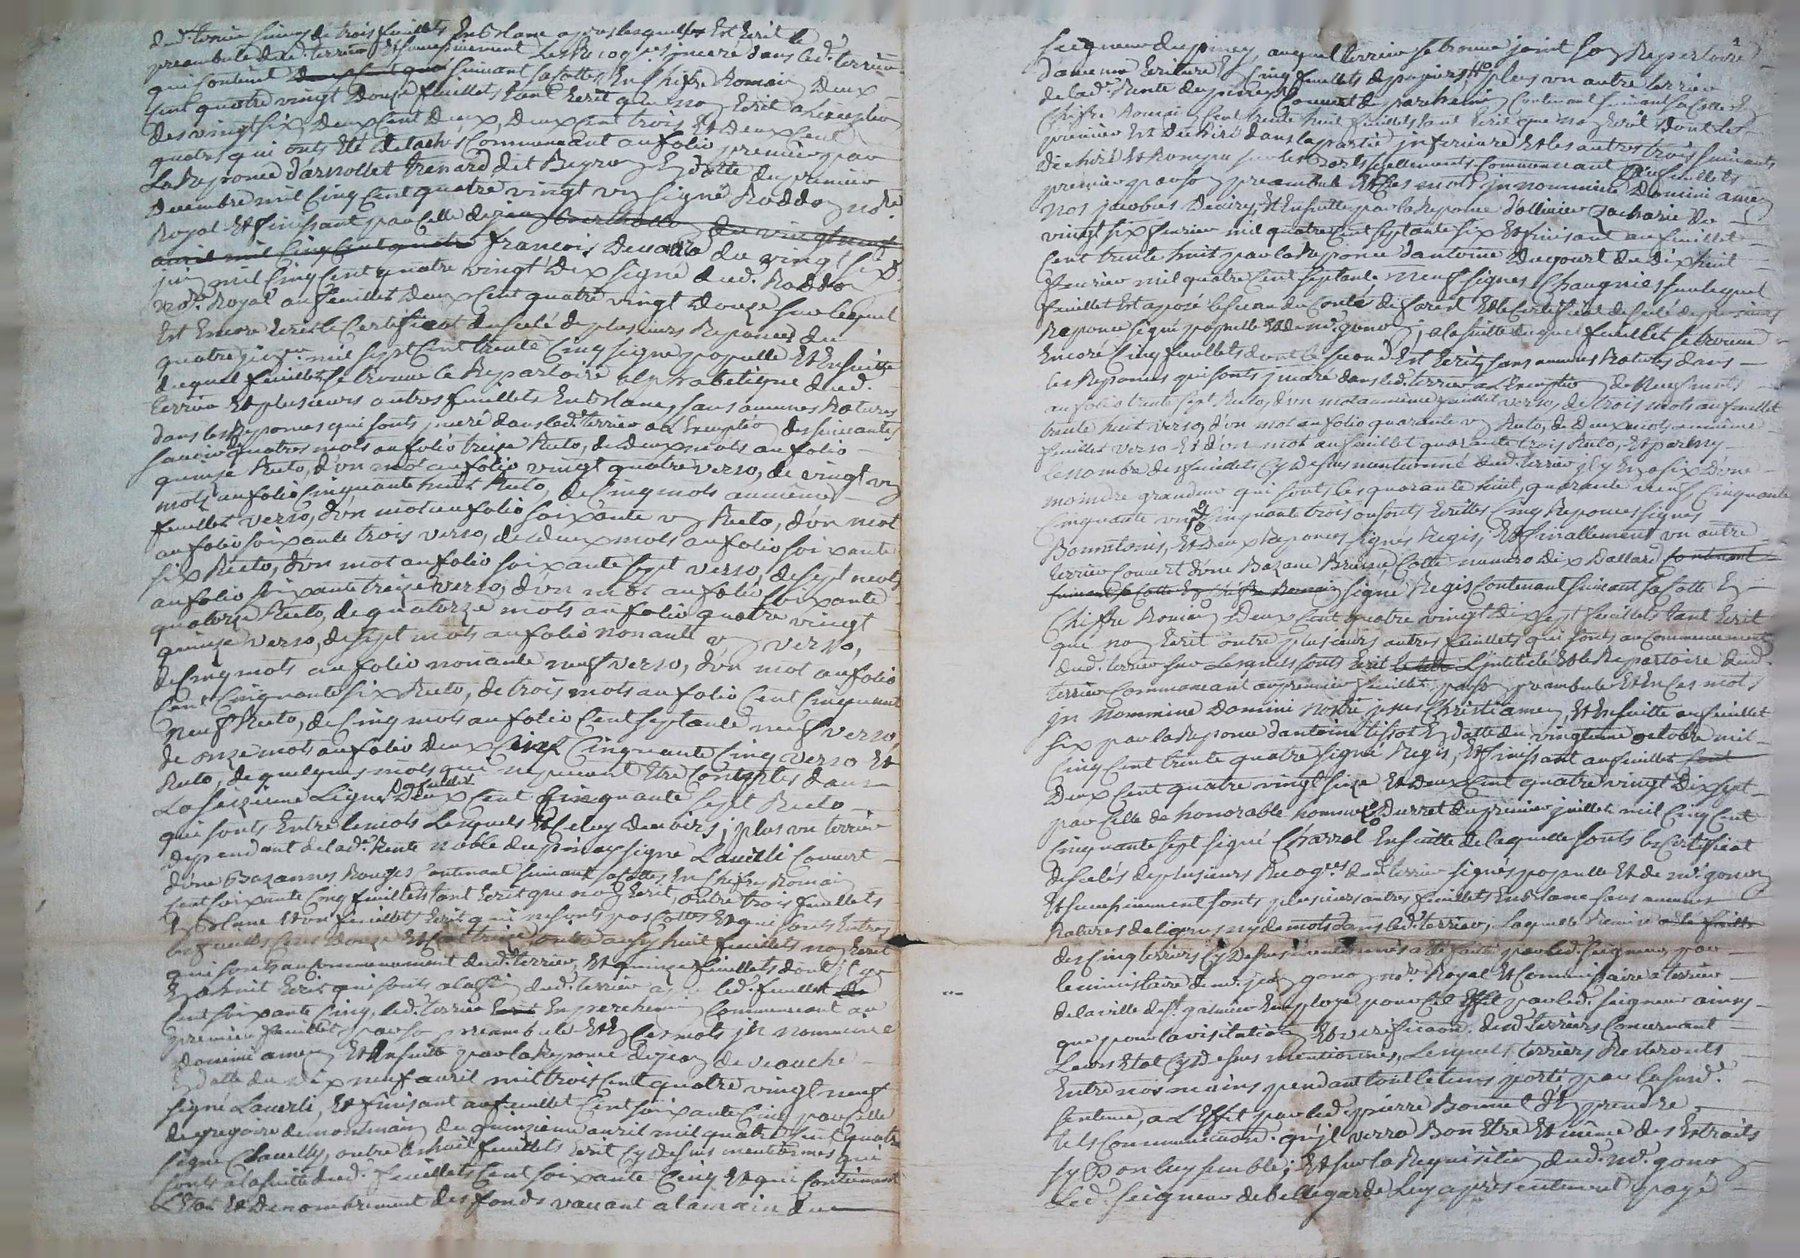 dud. terrier suivy de trois feuillets En blanc apres lesquelles Est Ecrit le
preambule dud. terrier Et finissant dans led. terrier
qui contient suivant sa cotte En chifre Romain Deux
Cent quatre vingt Douze feuillets tant Ecrit que non Ecrit a l'exception
des vingt six, deux cent deux, deux cent trois Et deux cent
quatre qui onts Eté detachés Commencant au folio premier par
La Reponce d'arnollet Renard dit Reyro En datte du premier
Decembre mil Cinq Cent quatre vingt un signé Raddo no.re
Royal Et finissant par celle de
francois du vingt six
juin mil Cinq Cent quatre vingt Dix signé dud. Raddo
no.re Royal au feuillet Deux Cent quatre vingt Douze sur lequel
Est Encore Ecrit le Certificat du scelé de plusieurs Reponces du
quatre mil sept Cent trente Cinq signé papulle Et En suitte
duquel feuillet se trouve le Repertoire alphabetique dud.
terrier Et plusieurs autres feuillets En blanc, sans aucunes Ratures
dans les Reponces qui sonts inseré dans led. terrier a L'exception des suivantes
savoir de quatre mots au folio treize Recto, de deux mots au folio
quinze Recto, d'un mot au folio vingt quatre verso, de vingt un
mots au folio Cinquante huit Recto, de Cinq mots au même
feuillet verso, d'un mot au folio soixante un Recto, d'un mot
au folio soixante trois verso, de deux mots au folio soixante
six Recto, d'un mot au folio soixante sept verso, de sept mots
au folio soixante treize verso, d'un mot au folio soixante
quatorze Recto, de quatorze mots au folio quatre vingt
quinze verso, de sept mots au folio nonante un verso,
de Cinq mots au folio nonante neuf verso, d'un mot au folio
Cent Cinquante six Recto, de trois mots au folio Cent Cinquante
neuf Recto, de Cinq mots au folio Cent septante neuf verso
de onze mots au folio deux Cent Cinquante Cinq verso Et
Recto, de quelques mots qui ne peuvent Etre Comptés dans
La seizieme Ligne du feuillet Deux Cent Cinquante sept Recto
qui sonts Entre les mots Lesquels Et Celuy Devoirs; plus un terrier
dependant de lad. Rente Noble du piney signé Lavilli Couvert
d'une Bazannes Rouges Contenant suivant sa Cotte En Chifre Romain
Cent soixante Cinq feuillets tant Ecrit que non Ecrit, outre trois feuillets
En blanc Et un feuillet Ecrit qui ne sont pas Cottés Et qui sonts Entres
les feuillets Cent Douze Et Cent treize, outre aussy huit feuillets non Ecrit
qui sonts au commencement dud. terrier, Et quinze feuillets dont il y
En a huit Ecrit qui sonts a la fin dud. terrier led. feuillet
Cent soixante Cinq, led. terrier En parchemin Commencant au
premier feuillet par son preambule Et En Ces mots jn nomine
Domini amen Et En suitte par la Reponce de jean de veauche
En datte du Dix neuf avril mil trois Cent quatre vingt neuf
signé Laverli, Et finissant au feuillet Cent soixante Cinq par celle
de gregoire de montmain du quinzieme avril mil quatre Cent quatre
signé Clavelly, outre les huit feuillets Ecrit Cy Dessus mentionnés qui
sonts a la suitte dud. feuillets Cent soixante Cinq Et qui Contiennent
L'Etat Et Denombrement des fonds vacant a la main du
seigneur du piney, auquel terrier se trouve joint son Repertoire
d'ancienne Ecriture En Cinq feuillets de papiers, plus un autre terrier
de lad. Rente du piney Couvert de parchemin Contenant suivant sa Cotte En
Chifre Romain Cent trente huit feuillets tant Ecrit que non Ecrit Dont Le
premier Est Dechiré dans la partie jnferieure Et les autres trois suivants
Dechiré Et Rompu sur les bords seullements Commencant au feuillets
premier par son preambule Et Ces mots jn nomine Domini amen
nos jacobus Decirey, Et En suitte par la Reponce d'ollivier Zacharie du
vingt six fevrier mil quatre Cent septante six Et finisant au feuillet
Cent trente huit par la Reponce d'antoine Ducourt du dix huit
fevrier mil quatre Cent septante neuf signés Chaugnier sur lequel
feuillet Est aposé le sceau du Conté de forest Et le Certificat de scelé de plusieurs
Reponce signé papulle Et de m.e gonon, a la suitte duquel feuillet se trouve
Encore Cinq feuillets dont le second Est Ecrit, sans aucunes Ratures dans
les Reponces qui sonts jnseré dans led. terrier a L'exception de Neuf mots
au folio trente sept Recto, d'un mot au même feuillet verso, de trois mots au feuillet
trente huit verso, d'un mot au folio quarante un Recto, de deux mots au même
feuillet verso Et d'un mot au feuillet quarante trois Recto, Et parmy
le nombre des feuillets Cy Dessus mentionné dud. terrier il y En a six D'une
moindre grandeur qui sonts les quarante huit, quarante neuf, Cinquante
Cinquante un, Cinquante trois ou sonts Ecrittes Cinq Reponces signés
Bonnetonis, Et Deux Reponces signés Regis, Et finallement un autre
terrier Couvert d'une Bazane Brune, Cotté numero dix Dallard Contenant
suivant sa Cotte En Chifre Romain signé Regis Contenant suivant sa Cotte En
Chiffre Romain Deux Cent quatre vingt dix sept feuillets tant Ecrit
que non Ecrit outre plusieurs autres feuillets qui sonts au Commencement
dud. terrier sur Lesquels sonts Ecrit L'intitulé Et le Repertoire dud.
terrier Commencant au premier feuillet par son preambule Et En Ces mots
jn Nomine Domini nostri jesus Christi amen, Et En suitte au feuillet
six par la Reponce d'antoine tissot En datte du vingtieme octobre mil
Cinq Cent trente quatre signé Regis, Et finissant au feuillet Cent
Deux Cent quatre vingt seize Et Deux Cent quatre vingt Dix sept
par Celle de honorable homme Durret du premier juillet mil Cinq Cent
Cinquante sept signé Charrel En suitte de laquelle sonts les Certificat
de scelés de plusieurs Recog.ces dud. terrier signés papulle Et de m.e gonon
Et finissant sonts plusieurs autres feuillets En blanc sans aucunes
Ratures de lignes ny de mots dans led. terrier, Laquelle Remise
des Cinq terriers Cy Dessus mentionnés a été faite par led. seigneur par
le ministaire de m.e jean gonon no.re Royal Et Commissaire a terrier
de la ville de s.t galmier Employé pour Cet Effet par led. seigneur ainsy
que pour la visitation Et verification dud. terriers Concernant
Leurs Etat Cy Dessus mentionnés, Lesquels terriers Resteronts
Entre nos mains pendant tout le tems porté par la susd.
sentence, a L'Effet par led. pierre Bonnet d'En prendre
tels Communication qu'jl verra Bon Etre Et même des Extraits
sy Bon luy semble; Et sur la Requisition dud. m.e gonon
Led. seigneur de bellegarde Luy a presentement payé